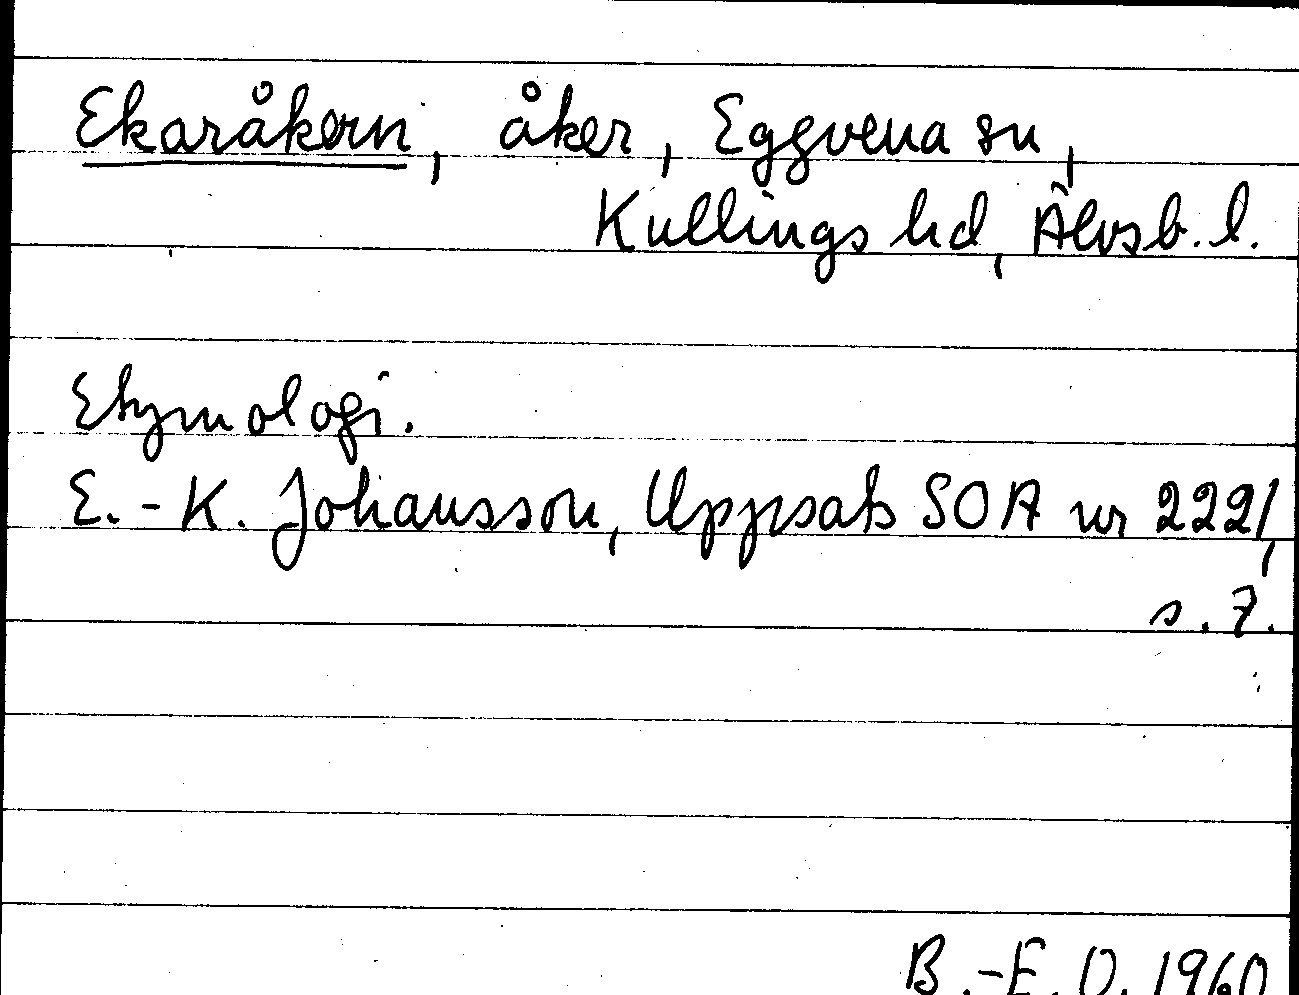 Ekaråkern, åker, Eggvena sn,
Kullings hd, Älvsb. l.
Etymologi.
E.-K. Johansson, Uppsats SOA nr 2221,
s. 7.
B.-E. O. 1960